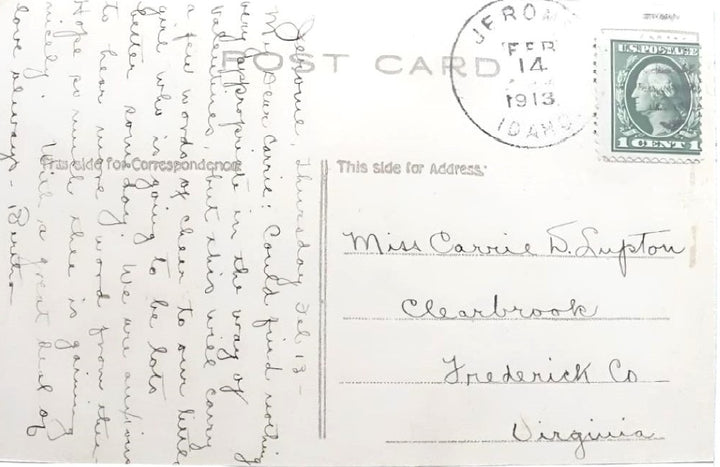 POST CARD
JEROME
FEB
14
1913
IDAHO
U.S. POSTAGE
1 CENT 1
This side for Correspondence
This side for Address.
Jerome, Thursday Feb. 13 -
My Dear Carrie: Could find nothing
very appropriate in the way of
valentines, but this will carry
a few words of cheer to our little
girl who is going to be lots
better some day. We are anxious
to hear more word from there
Hope so much thee is gaining
nicely. With a great deal of
love always - Bertha
Miss Carrie D. Lupton
Clearbrook
Frederick Co
Virginia